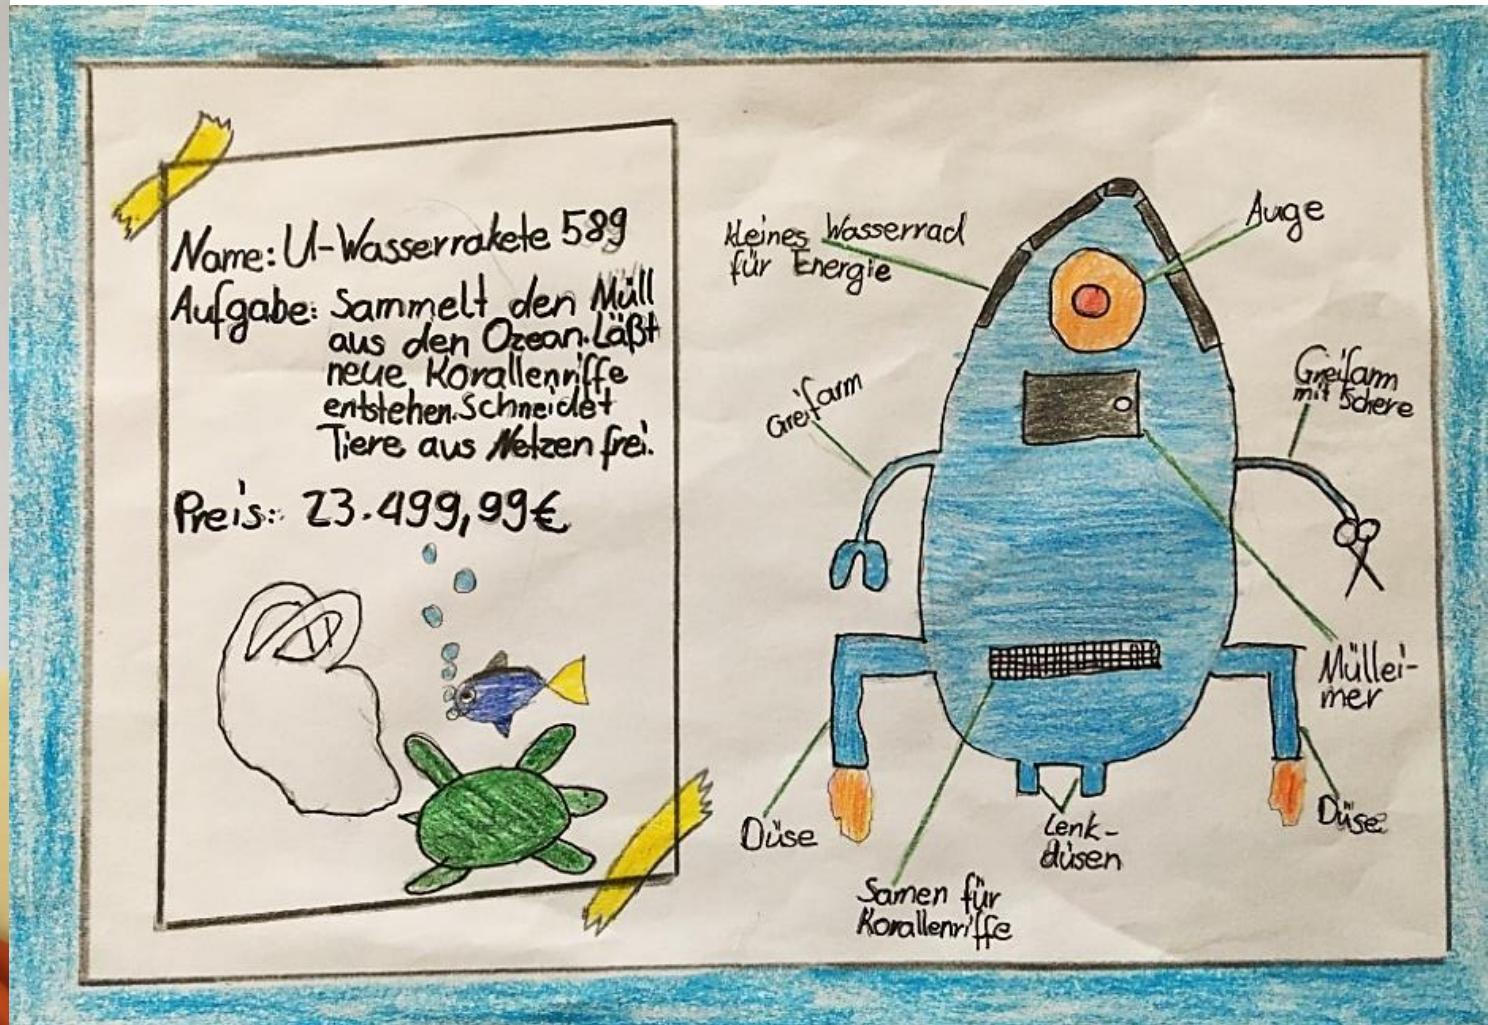 Name: U-Wasserrakete 589
Aufgabe: Sammelt den Müll
aus den Ozean. Läßt
neue Korallenriffe
entstehen. Schneidet
Tiere aus Netzen frei.
Preis: 23.499,99€
kleines Wasserrad
für Energie
Auge
Greifarm
Greifarm
mit Schere
Müllei-
mer
Düse
Lenk-
düsen
Düse
Samen für
Korallenriffe